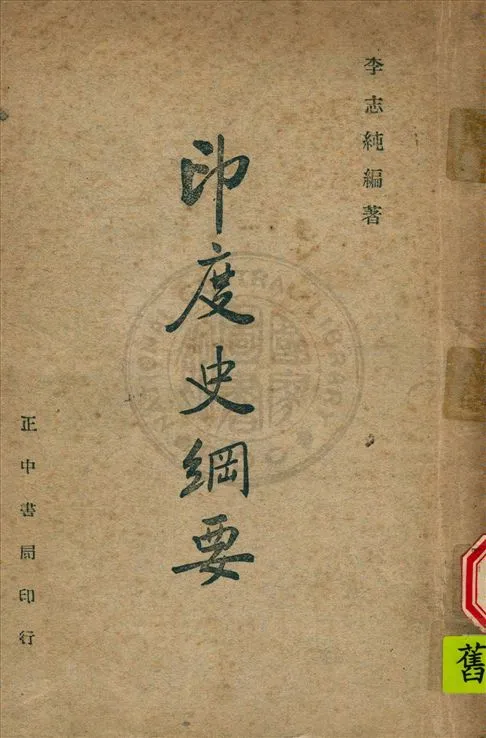 李志純編著
印度史綱要
正中書局印行
舊